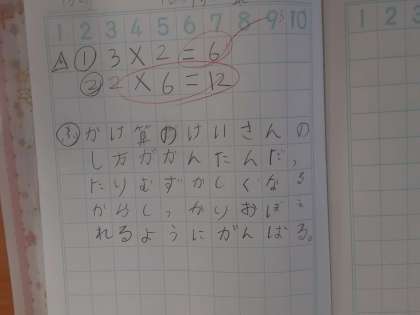 1 2 3 4 5 6 7 8 9 10
1 2 3
A ① 3×2=6
② 2×6=12
ふ かけ算のけいさんの
し方がかんたんだ,
たりむずかしくなる
からし,かりおぼえ
れるようにがんばる。